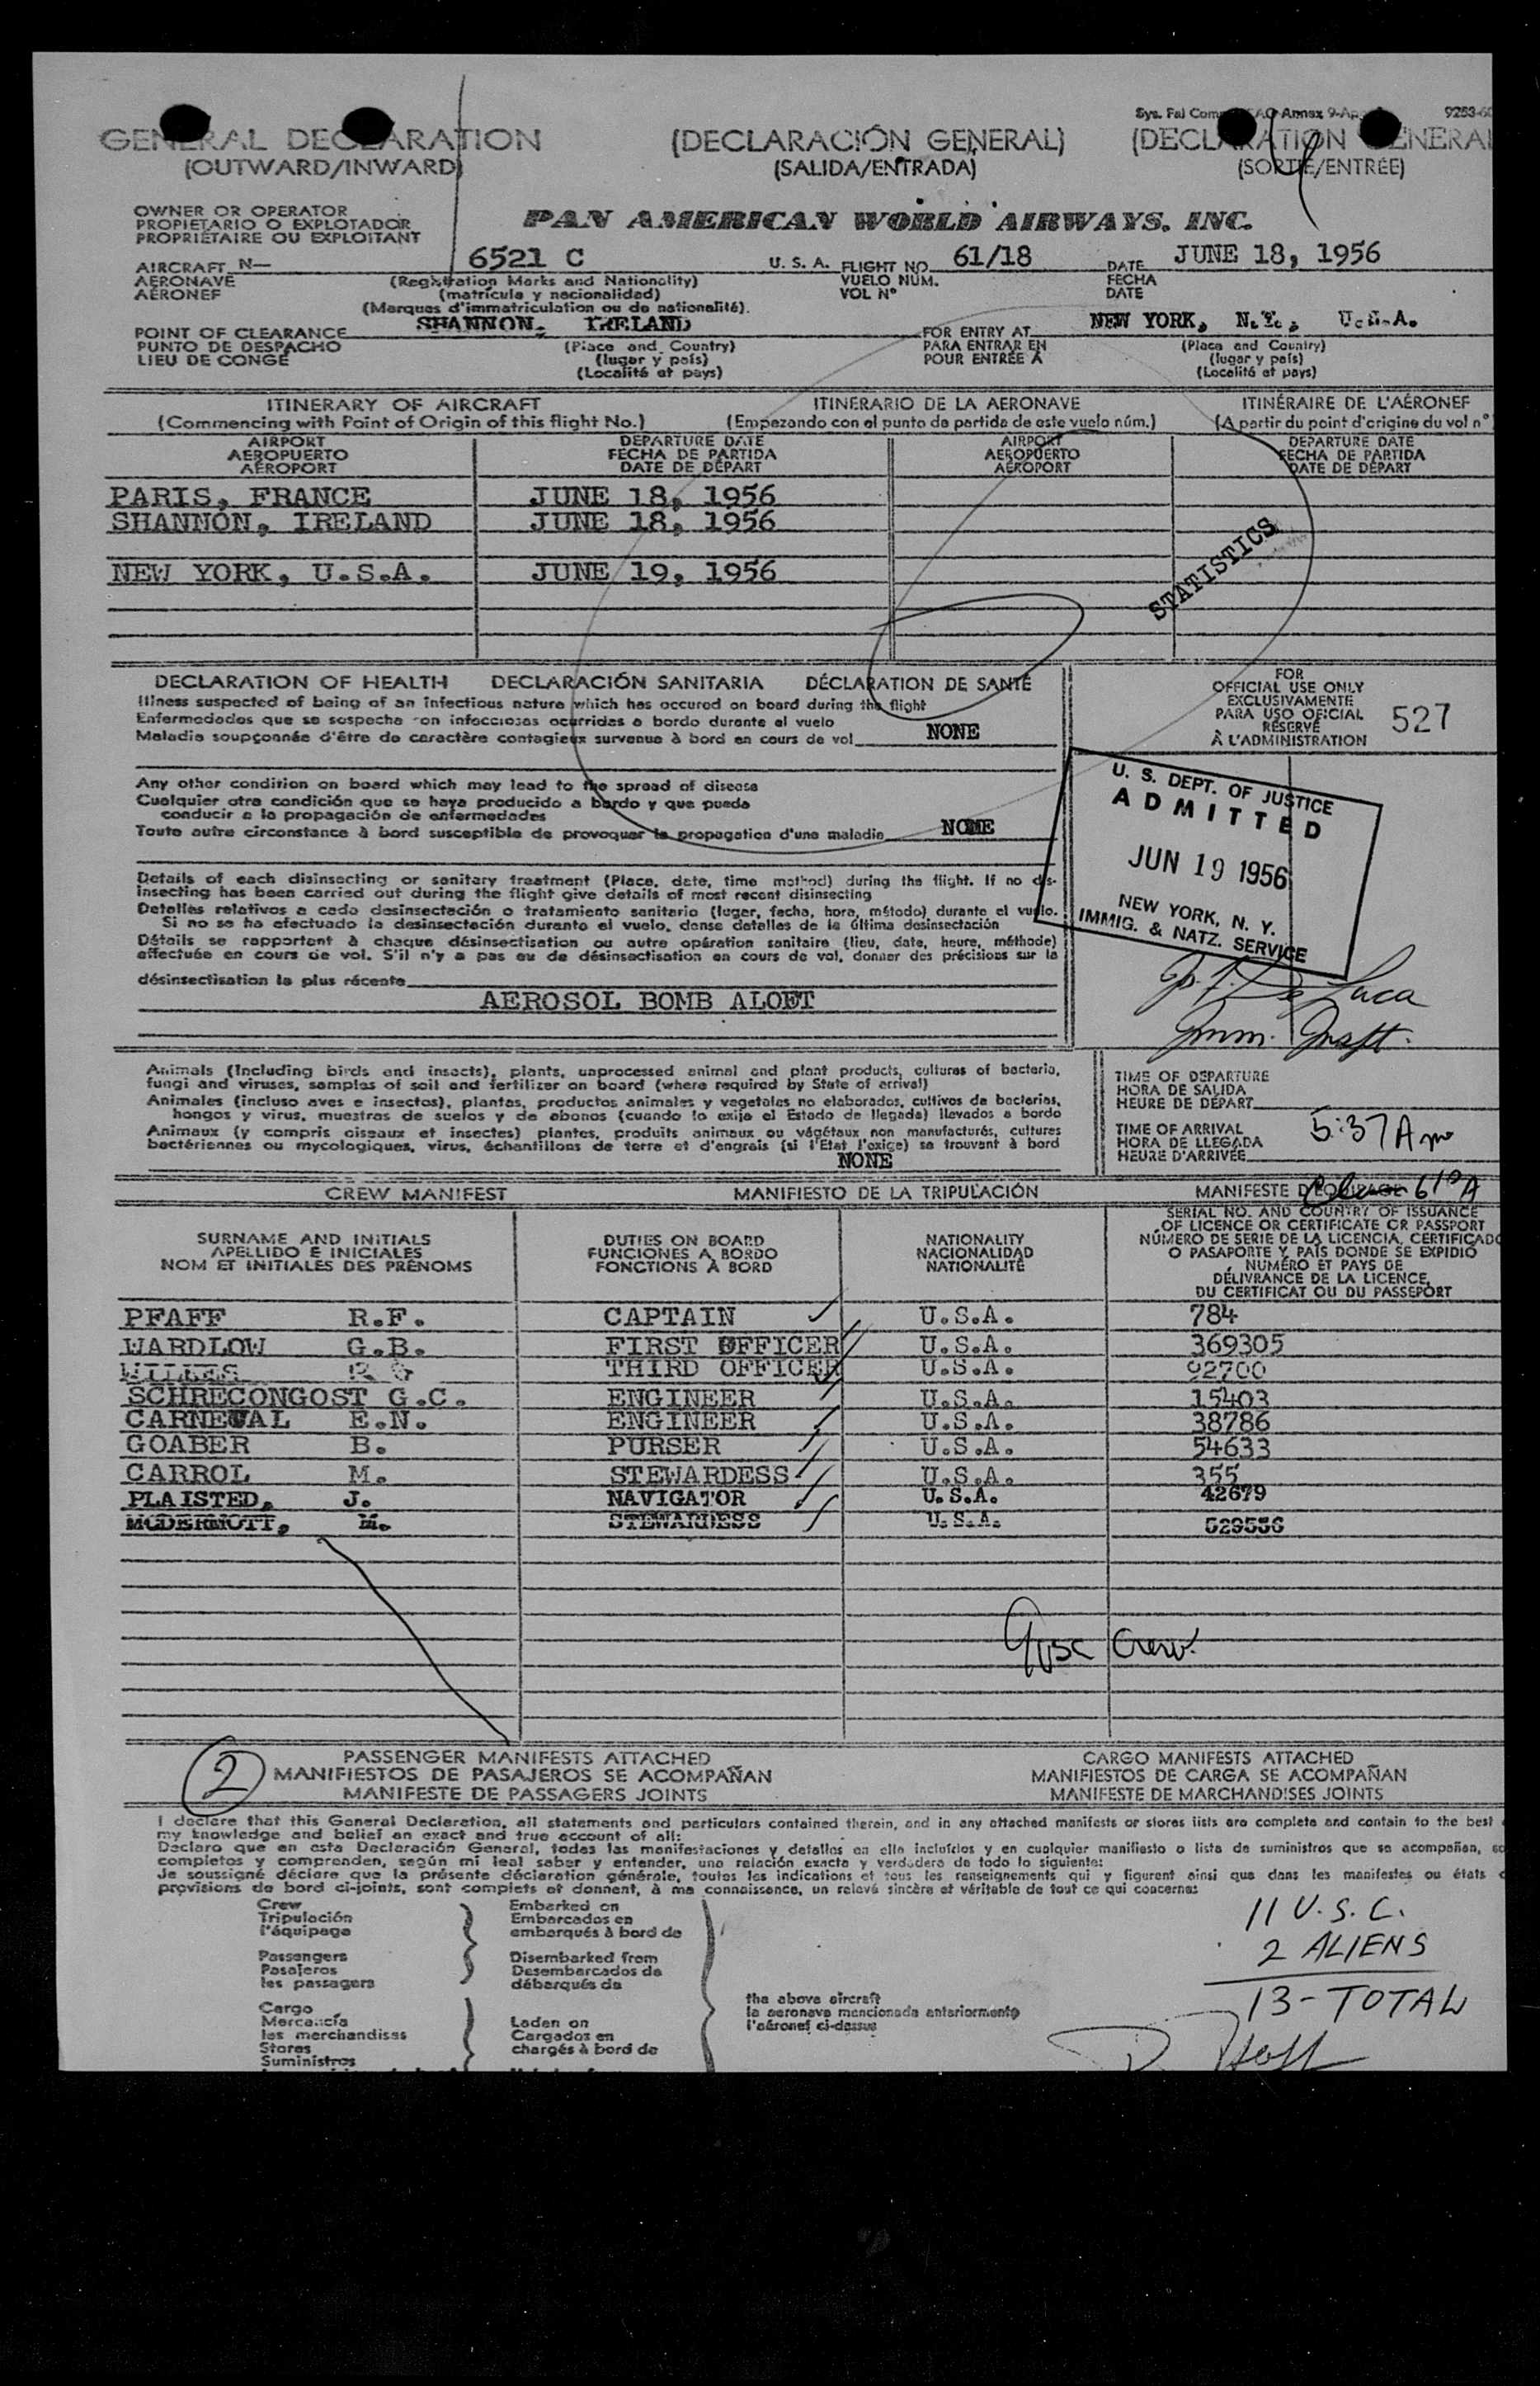 Sys. Fal Com Annex 9-Ap 9253-60
GENERAL DECLARATION (DECLARACIÓN GENERAL) (DECLARATION GENERAL
(OUTWARD/INWARD) (SALIDA/ENTRADA) (SORTIE/ENTRÉE)
OWNER OR OPERATOR
PROPIETARIO O EXPLOTADOR
PROPRIÉTAIRE OU EXPLOITANT
PAN AMERICAN WORLD AIRWAYS, INC.
AIRCRAFT N— 6521 C U. S. A. FLIGHT NO. 61/18 DATE JUNE 18, 1956
AERONAVE (Registration Marks and Nationality) VUELO NÚM. FECHA
AÉRONEF (matrícula y nacionalidad) VOL N° DATE
(Marques d'immatriculation ou de nationalité).
POINT OF CLEARANCE SHANNON, IRELAND FOR ENTRY AT NEW YORK, N.Y., U.S.A.
PUNTO DE DESPACHO (Place and Country) PARA ENTRAR EN (Place and Country)
LIEU DE CONGÉ (lugar y país) POUR ENTRÉE À (lugar y país)
(Localité et pays) (Localité et pays)
ITINERARY OF AIRCRAFT ITINERARIO DE LA AERONAVE ITINÉRAIRE DE L'AÉRONEF
(Commencing with Point of Origin of this flight No.) (Empezando con el punto de partida de este vuelo núm.) (A partir du point d'origine du vol n°
AIRPORT DEPARTURE DATE AIRPORT DEPARTURE DATE
AEROPUERTO FECHA DE PARTIDA AEROPUERTO FECHA DE PARTIDA
AÉROPORT DATE DE DÉPART AÉROPORT DATE DE DÉPART
PARIS, FRANCE JUNE 18, 1956
SHANNON, IRELAND JUNE 18, 1956
STATISTICS
NEW YORK, U.S.A. JUNE 19, 1956
DECLARATION OF HEALTH DECLARACIÓN SANITARIA DÉCLARATION DE SANTÉ
Illness suspected of being of an infectious nature which has occured on board during the flight
Enfermedades que se sospecha son infecciosas ocurridas a bordo durante el vuelo
Maladie soupçonnée d'être de caractère contagieux survenue à bord en cours de vol NONE
FOR
OFFICIAL USE ONLY
EXCLUSIVAMENTE
PARA USO OFICIAL
RÉSERVÉ
À L'ADMINISTRATION
527
Any other condition on board which may lead to the spread of disease
Cualquier otra condición que se haya producido a bordo y que pueda
conducir a la propagación de enfermedades
Toute autre circonstance à bord susceptible de provoquer la propagation d'une maladie NONE
U. S. DEPT. OF JUSTICE
ADMITTED
JUN 19 1956
NEW YORK, N. Y.
IMMIG. & NATZ. SERVICE
De Luca
Imm. Inspt.
Details of each disinsecting or sanitary treatment (Place, date, time method) during the flight. If no dis-
insecting has been carried out during the flight give details of most recent disinsecting
Detalles relativos a cada desinsectación o tratamiento sanitario (lugar, fecha, hora, método) durante el vuelo.
Si no se ha efectuado la desinsectación durante el vuelo, dense detalles de la última desinsectación
Détails se rapportent à chaque désinsectisation ou autre opération sanitaire (lieu, date, heure, méthode)
effectuée en cours de vol. S'il n'y a pas eu de désinsectisation en cours de vol, donner des précisions sur la
désinsectisation la plus récente
AEROSOL BOMB ALOFT
Animals (Including birds and insects), plants, unprocessed animal and plant products, cultures of bacteria,
fungi and viruses, samples of soil and fertilizer on board (where required by State of arrival)
Animales (incluso aves e insectos), plantas, productos animales y vegetales no elaborados, cultivos de bacterias,
hongos y virus, muestras de suelos y de abonos (cuando lo exija el Estado de llegada) llevados a bordo
Animaux (y compris oiseaux et insectes) plantes, produits animaux ou végétaux non manufacturés, cultures
bactériennes ou mycologiques, virus, échantillons de terre et d'engrais (si l'Etat l'exige) se trouvant à bord
NONE
TIME OF DEPARTURE
HORA DE SALIDA
HEURE DE DÉPART
TIME OF ARRIVAL
HORA DE LLEGADA 5:37 Am
HEURE D'ARRIVÉE
CREW MANIFEST MANIFIESTO DE LA TRIPULACIÓN MANIFESTE 610A
SURNAME AND INITIALS DUTIES ON BOARD NATIONALITY
APELLIDO E INICIALES FUNCIONES A BORDO NACIONALIDAD
NOM ET INITIALES DES PRÉNOMS FONCTIONS À BORD NATIONALITÉ
SERIAL NO. AND COUNTRY OF ISSUANCE
OF LICENCE OR CERTIFICATE OR PASSPORT
NÚMERO DE SERIE DE LA LICENCIA, CERTIFICADO
O PASAPORTE Y PAÍS DONDE SE EXPIDIÓ
NUMÉRO ET PAYS DE
DÉLIVRANCE DE LA LICENCE,
DU CERTIFICAT OU DU PASSEPORT
PFAFF R.F. CAPTAIN U.S.A. 784
WARDLOW G.B. FIRST OFFICER U.S.A. 369305
THIRD OFFICER U.S.A. 92700
SCHRECONGOST G.C. ENGINEER U.S.A. 15403
CARNEVAL E.N. ENGINEER U.S.A. 38786
GOABER B. PURSER U.S.A. 54633
CARROL M. STEWARDESS U.S.A. 355
PLAISTED, J. NAVIGATOR U.S.A. 42679
MCDERMOTT, M. STEWARDESS U.S.A. 529556
Crew
2
PASSENGER MANIFESTS ATTACHED CARGO MANIFESTS ATTACHED
MANIFIESTOS DE PASAJEROS SE ACOMPAÑAN MANIFIESTOS DE CARGA SE ACOMPAÑAN
MANIFESTE DE PASSAGERS JOINTS MANIFESTE DE MARCHANDISES JOINTS
I declare that this General Declaration, all statements and particulars contained therein, and in any attached manifests or stores lists are complete and contain to the best
my knowledge and belief an exact and true account of all:
Declaro que en esta Declaración General, todas las manifestaciones y detalles en ella incluídos y en cualquier manifiesto o lista de suministros que se acompañan,
completos y comprenden, según mi leal saber y entender, una relación exacta y verdadera de todo lo siguiente:
Je soussigné déclare que la présente déclaration générale, toutes les indications et tous les renseignements qui y figurent ainsi que dans les manifestes ou états
provisions de bord ci-joints, sont complets et donnent, à ma connaissance, un relevé sincère et véritable de tout ce qui concerne:
Crew Embarked on
Tripulación Embarcados en
l'équipage embarqués à bord de
Passengers Disembarked from
Pasajeros Desembarcados de
les passagers débarqués de
Cargo
Mercancía Laden on
les merchandises Cargados en
Stores chargés à bord de
Suministros
the above aircraft
la aeronave mencionada anteriormente
l'aéronef ci-dessus
11 U.S.C.
2 ALIENS
13-TOTAL